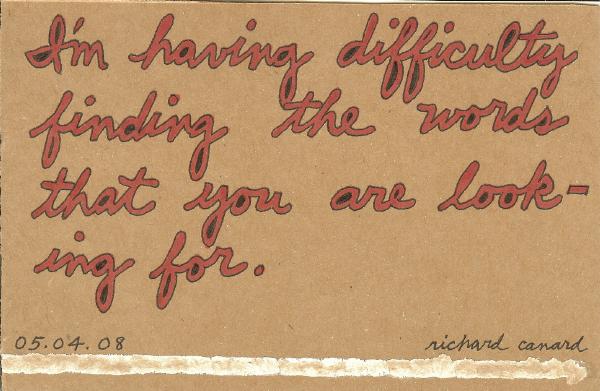 I'm having difficulty
finding the words
that you are look-
ing for.
05.04.08 richard canard